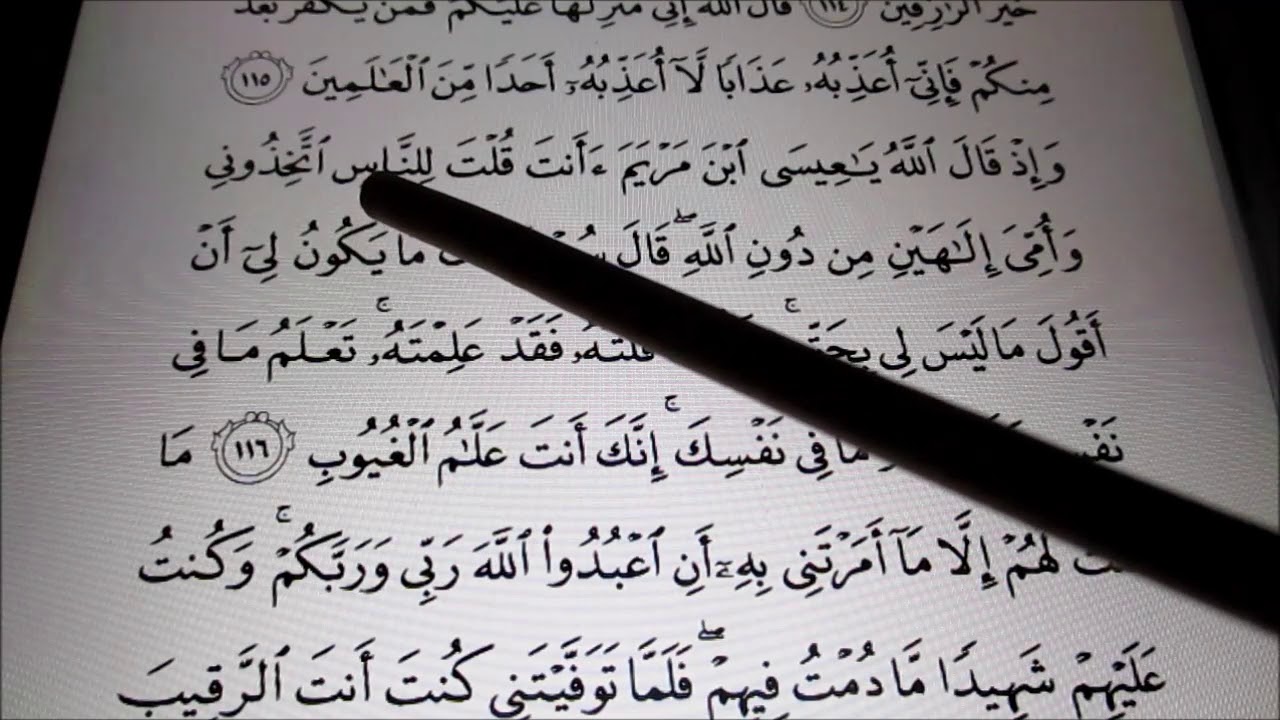 خَيْرُ ٱلرَّٰزِقِينَ ١١٤ قَالَ ٱللَّهُ إِنِّى مُنَزِّلُهَا عَلَيْكُمْ فَمَن يَكْفُرْ بَعْدُ
مِنكُمْ فَإِنِّىٓ أُعَذِّبُهُۥ عَذَابًا لَّآ أُعَذِّبُهُۥٓ أَحَدًا مِّنَ ٱلْعَٰلَمِينَ ١١٥
وَإِذْ قَالَ ٱللَّهُ يَٰعِيسَى ٱبْنَ مَرْيَمَ ءَأَنتَ قُلْتَ لِلنَّاسِ ٱتَّخِذُونِى
وَأُمِّىَ إِلَٰهَيْنِ مِن دُونِ ٱللَّهِ ۖ قَالَ مَا يَكُونُ لِىٓ أَنْ
أَقُولَ مَا لَيْسَ لِى بِحَقٍّ ۚ قُلْتُهُۥ فَقَدْ عَلِمْتَهُۥ ۚ تَعْلَمُ مَا فِى
نَفْسِى مَا فِى نَفْسِكَ ۚ إِنَّكَ أَنتَ عَلَّٰمُ ٱلْغُيُوبِ ١١٦ مَا
لَهُمْ إِلَّا مَآ أَمَرْتَنِى بِهِۦٓ أَنِ ٱعْبُدُوا۟ ٱللَّهَ رَبِّى وَرَبَّكُمْ ۚ وَكُنتُ
عَلَيْهِمْ شَهِيدًا مَّا دُمْتُ فِيهِمْ ۖ فَلَمَّا تَوَفَّيْتَنِى كُنتَ أَنتَ ٱلرَّقِيبَ